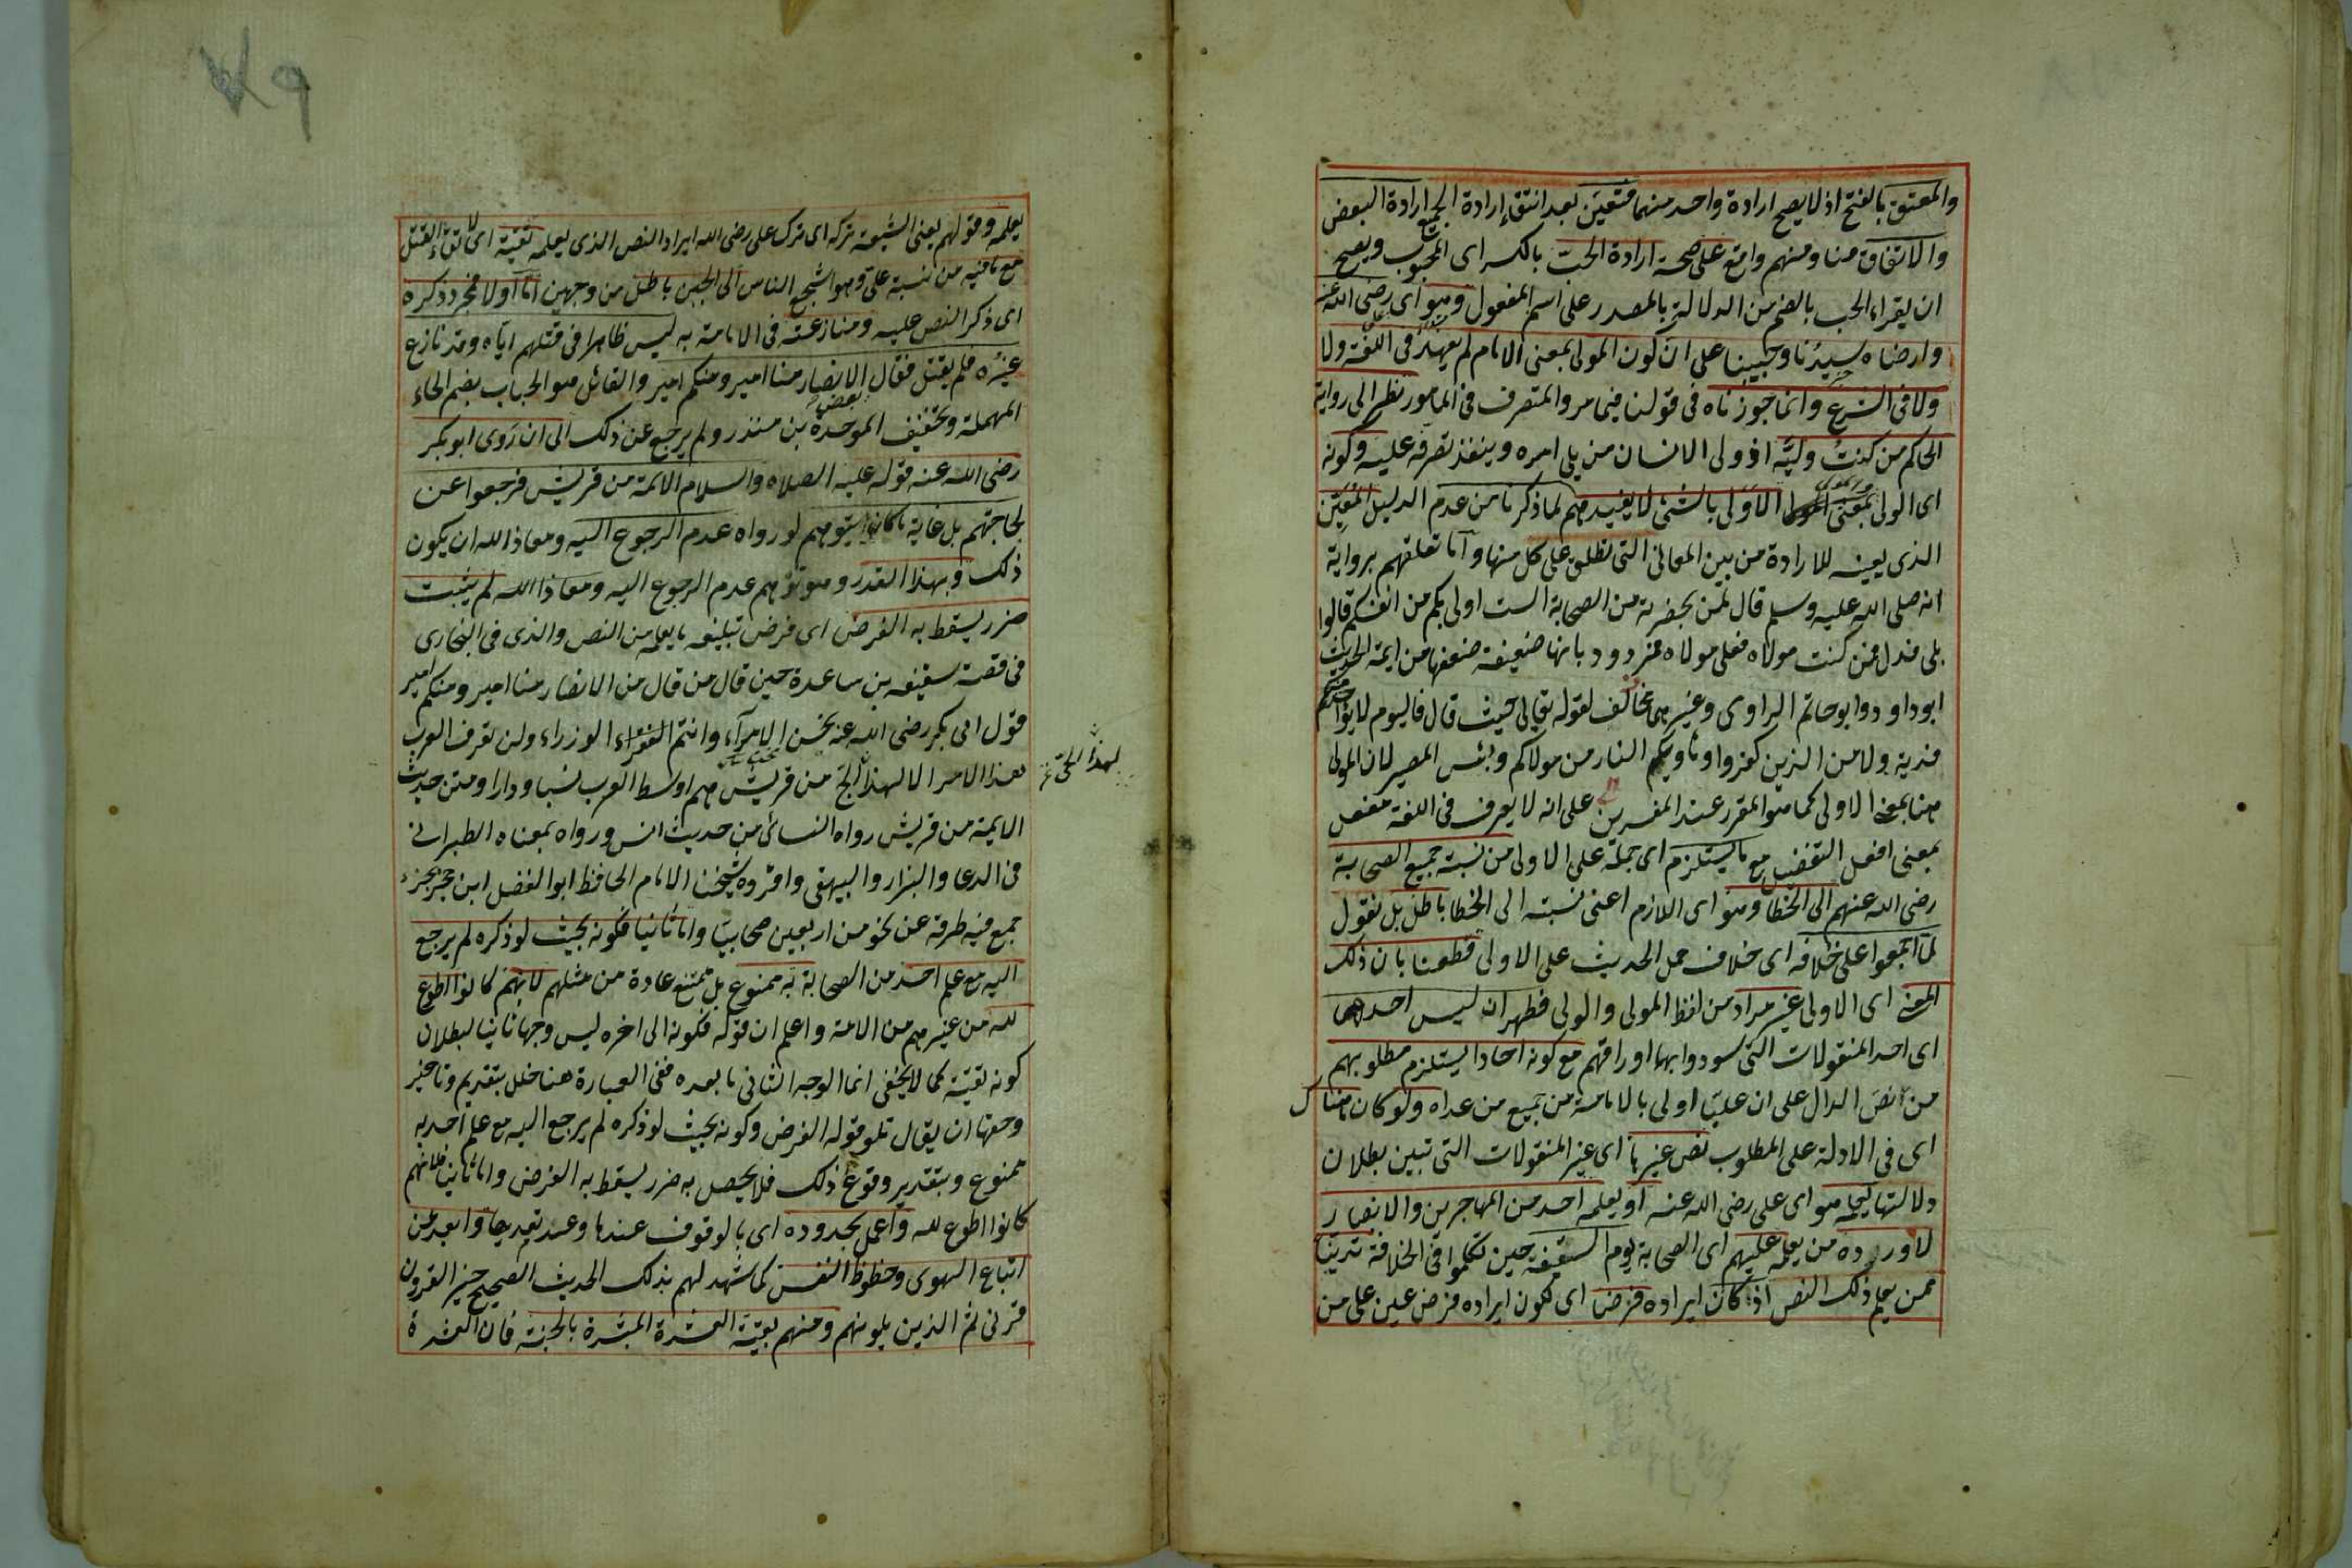 والمعتق بالفتح اذ لا يصح ارادة واحد منهما فتعين بعد انتفاء ارادة الجميع ارادة البعض
والاتفاق منا ومنهم واقع على صحة ارادة الحب بالكسر اى المحبوب ويصح
ان يقراء الحب بالضم من الدلالة بالمصدر على اسم المفعول وهو اى رضى الله عنه
وارضاه سيدنا وحبيبنا على ان كون المولى بمعنى الامام لم يعهد فى اللغة ولا
ولا فى الشرع وانما جوزناه فى قولنا فيما مر والمتصرف فى المامور نظرا الى رواية
الحاكم من كنت وليه اذ ولى الانسان من يلى امره وينفذ تصرفه عليه وكونه
اى الولى بمعنى الاولى بالشئ لا يفيدهم لما ذكرنا من عدم الدليل المعين
الذى يعينه للارادة من بين المعانى التى تطلق على كل منها واما تعلقهم برواية
انه صلى الله عليه وسلم قال لمن بحضرته من الصحابة الست اولى بكم من انفسكم قالوا
بلى فمن كنت مولاه فعلى مولاه فمردود بانها ضعيفة ضعفها من ايمة الحديث
ابو داود وابو حاتم الراوى وغيرهما مخالف لقوله تعالى حيث قال فاليوم لا يؤخذ منكم
فدية ولا من الذين كفروا وماويكم النار هى مولاكم وبئس المصير لان المولى
هنا بمعنى الاولى كما هو المقرر عند المفسرين على انه لا يعرف فى اللغة مفعل
بمعنى افعل التفضيل مع ما يستلزم اى حمله على الاولى من نسبة جميع الصحابة
رضى الله عنهم الى الخطا وهو اى اللازم اعنى نسبته الى الخطا باطل بل نقول
لما اجمعوا على خلافه اى خلاف حمل الحديث على الاولى قطعنا بان ذلك
المعنى اى الاولى غير مراد من لفظ المولى والولى فظهر ان ليس احدها
اى احد المنقولات التى سودوا بها اوراقهم مع كونه احادا يستلزم مطلوبهم
من النص الدال على ان عليا اولى بالامامة من جميع من عداه ولو كان هناك
اى فى الادلة على المطلوب نص غيرها اى غير المنقولات التى تبين بطلان
دلالتها يعلمه هو اى على رضى الله عنه او يعلمه احد من المهاجرين والانصار
لاورده من يعلمه عليهم اى الصحابة يوم السقيفة حين تكلموا فى الخلافة تدينا
ممن يعلم ذلك النص اذ كان ايراده فرضا اى لكون ايراده فرض عين على من
يعلمه وقولهم يعنى الشيعة تركه اى ترك على رضى الله ايراد النص الذى يعلمه تقية اى لاتقاء القتل
مع ما فيه من نسبة على وهو اشجع الناس الى الجبن باطل من وجهين اما اولا فمجرد ذكره
اى ذكر النص عليه ومنازعته فى الامامة به ليس ظاهرا فى قتلهم اياه وقد نازع
غيره فلم يقتل فقال بعض الانصار منا امير ومنكم امير والقائل هو الحباب بضم الحاء
المهملة وتخفيف الموحدة بن منذر ولم يرجع عن ذلك الى ان روى ابو بكر
رضى الله عنه قوله عليه الصلاة والسلام الائمة من قريش فرجعوا عن
لجاجتهم بل غاية ما كانوا يتوهم لو رواه عدم الرجوع اليه ومعاذ الله ان يكون
ذلك وبهذا القدر وهو توهم عدم الرجوع اليه ومعاذ الله لم يثبت
ضرر يسقط به الفرض اى فرض تبليغه ما يعلمه من النص والذى فى البخارى
فى قصة سقيفه بن ساعدة حين قال من قال من الانصار منا امير ومنكم امير
قول ابى بكر رضى الله عنه نحن الامراء وانتم الوزراء ولن تعرف العرب
هذا الامر الا لهذا الحى من قريش هم اوسط العرب نسبا ودارا ومتن حديث
لهذا الحى
الايمة من قريش رواه النسائى من حديث انس ورواه بمعناه الطبرانى
فى الدعا والبزار والبيهقى وافرده شيخنا الامام الحافظ ابو الفضل ابن حجر بجزء
جمع فيه طرقه عن نحو من اربعين صحابيا واما ثانيا فكونه بحيث لو ذكره لم يرجع
اليه مع علم احد من الصحابة به ممنوع بل ممتنع عادة من مثلهم لانهم كانوا اطوع
لله من غيرهم من الامة واعلم ان قوله فكونه الى اخره ليس وجها ثانيا لبطلان
كونه تقية كما لا يخفى انما الوجه الثانى ما بعده ففى العبارة هنا خلل بتقديم وتاخير
وحقها ان يقال تلو قوله الفرض وكونه بحيث لو ذكره لم يرجع اليه مع علم احد به
ممنوع وبتقدير وقوع ذلك فلا يحصل به ضرر يسقط به الفرض واما ثانيا فلانهم
كانوا اطوع لله واعمل بحدوده اى بالوقوف عندها وعند تعديها وابعد عن
اتباع الهوى وحظوظ النفس كما شهد لهم بذلك الحديث الصحيح خير القرون
قرنى ثم الذين يلونهم ومنهم بقية العشرة المبشرة بالجنة فان العشرة